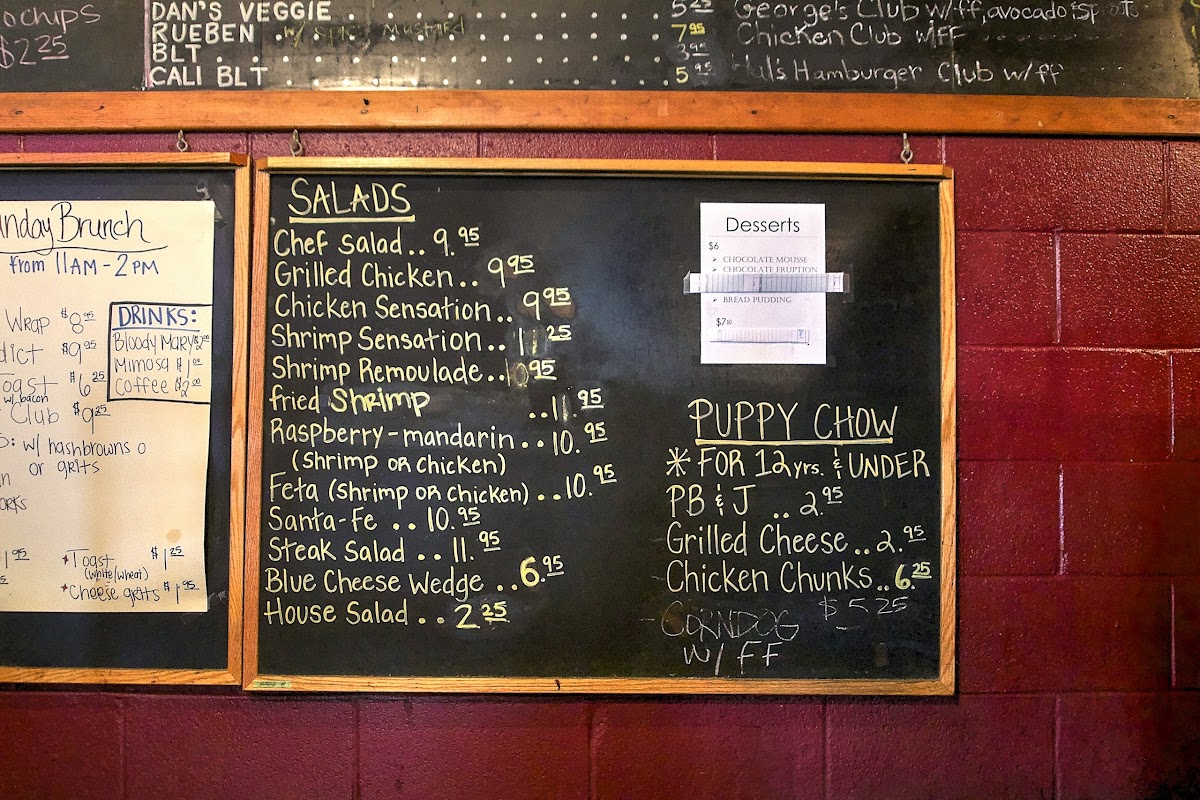 ochips
$2 25
DAN'S VEGGIE
RUEBEN w/ Spicy Mustard 7 95
BLT 3 95
CALI BLT 5 95
George's Club w/ff, avocado & Sprouts
Chicken Club w/FF
Hal's Hamburger Club w/ff
unday Brunch
from 11AM - 2PM
Wrap $8 95
dict $9 95
Toast $6 25
w/ bacon
Club $9 25
S: w/ hashbrowns o
or grits
DRINKS:
Bloody Mary
Mimosa $1 00
Coffee $2 00
*Toast $1 25
(white/wheat)
*Cheese grits $1 95
SALADS
Chef Salad.. 9.95
Grilled Chicken.. 9 95
Chicken Sensation.. 9 95
Shrimp Sensation.. 11 25
Shrimp Remoulade.. 10 95
fried Shrimp ..11.95
Raspberry-mandarin.. 10.95
(Shrimp or Chicken)
Feta (Shrimp or Chicken)..10.95
Santa-Fe .. 10.95
Steak Salad .. 11.95
Blue Cheese Wedge ..6.95
House Salad .. 2 25
Desserts
$6
➢ CHOCOLATE MOUSSE
➢ CHOCOLATE ERUPTION
➢ BREAD PUDDING
$7 50
PUPPY CHOW
* FOR 12 yrs. & UNDER
PB & J .. 2.95
Grilled Cheese.. 2.95
Chicken Chunks.. 6.25
- CORNDOG $5 25
w/ FF